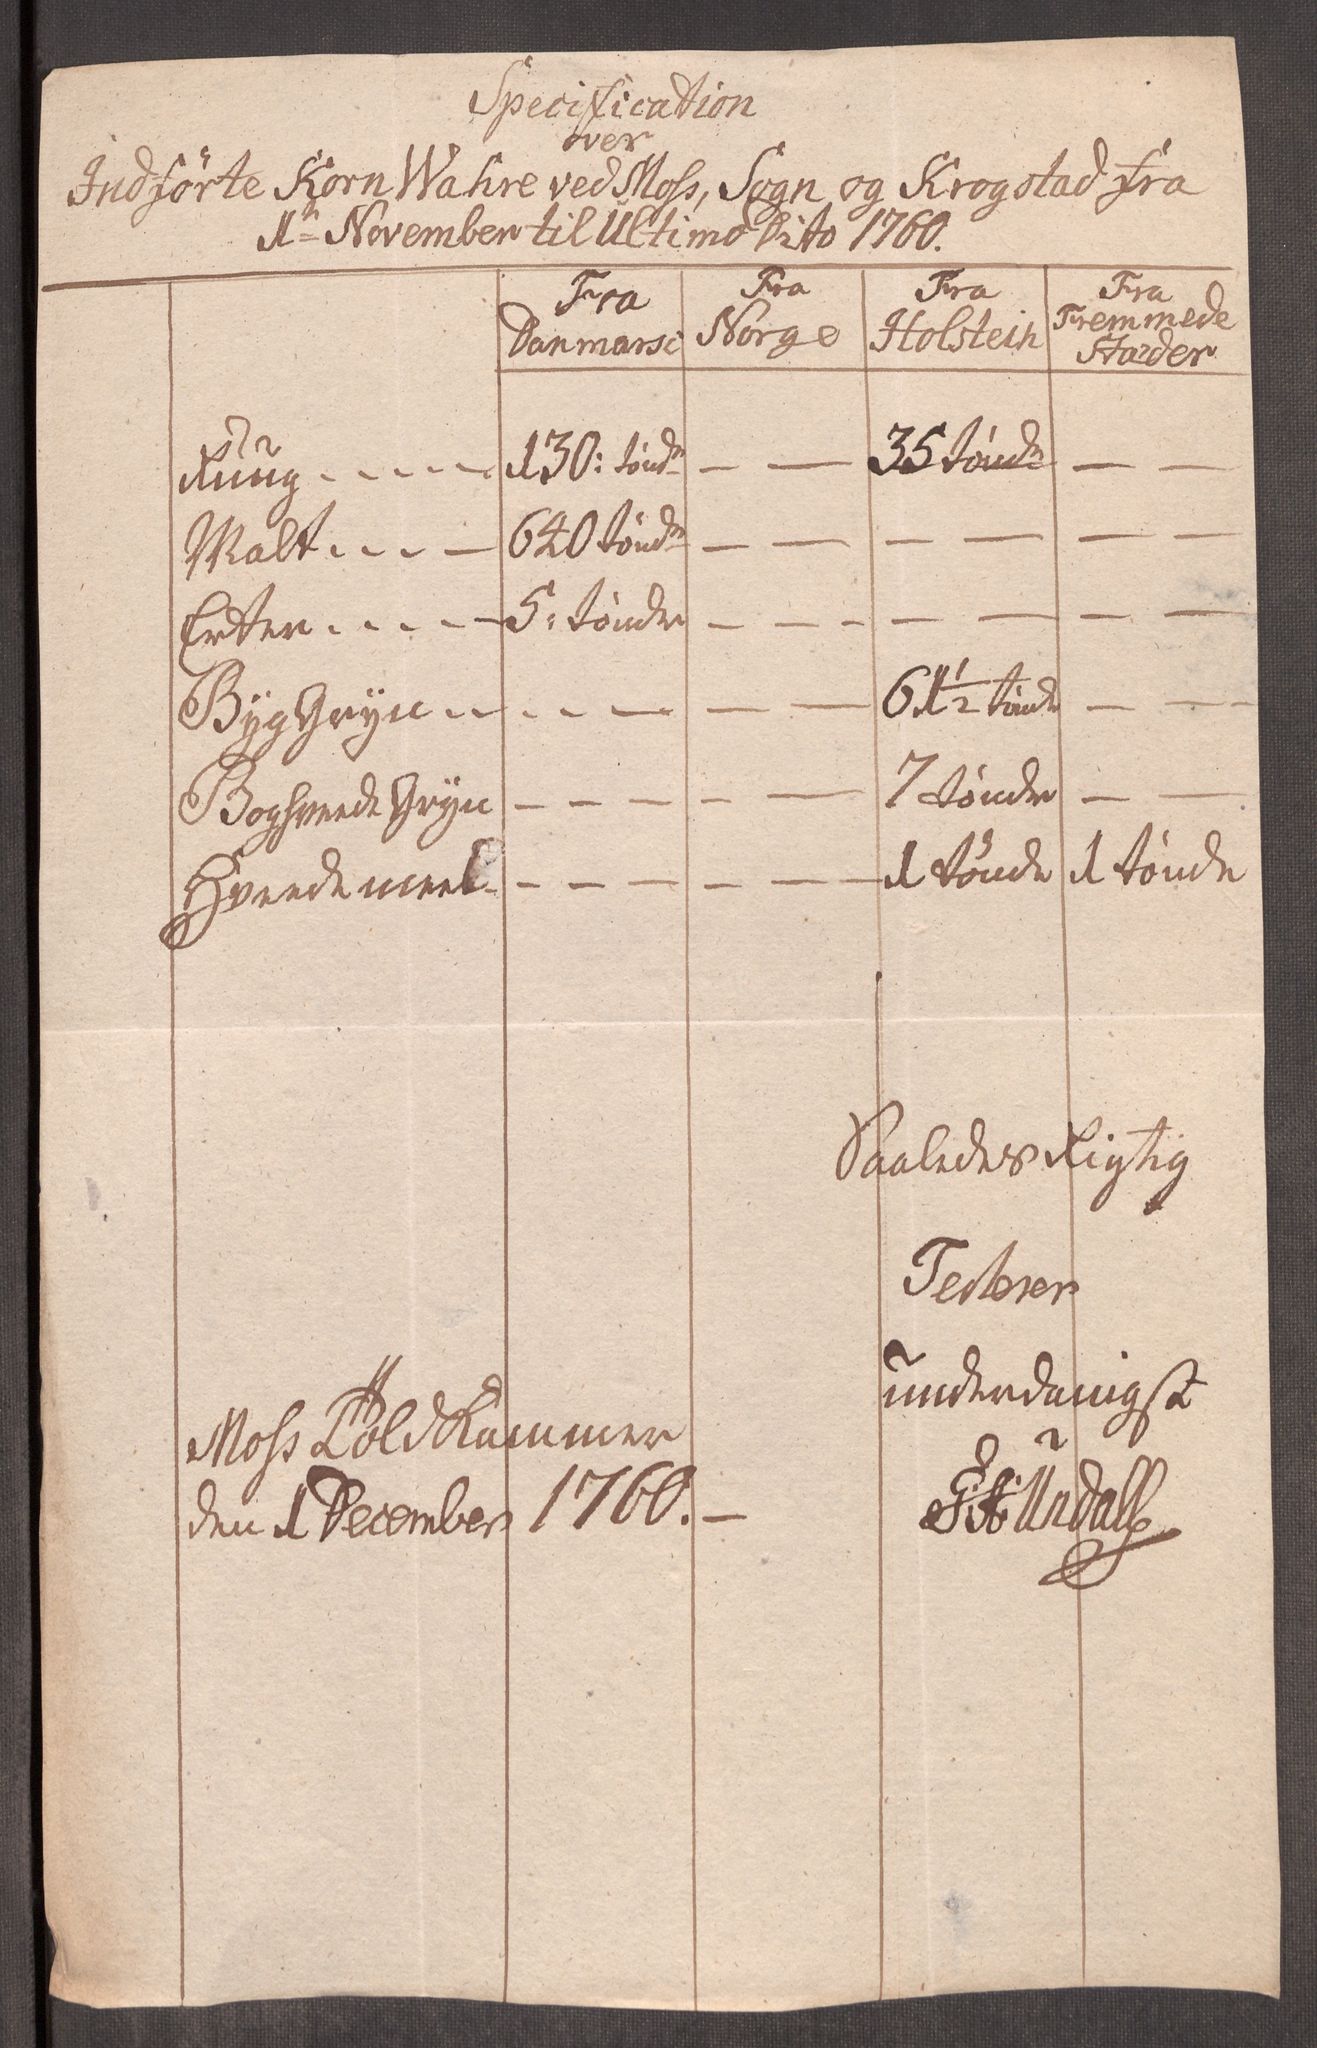 Specification
over
Indførte Korn Wahre ved Moss, Sogn og Krogstad fra
1n November til Ultimo Dito 1760.
Fra Danmarc
Fra Norge
Fra Holstein
Fra Fremmede Stæder
Rüüg - - - - - 130: tøndr - - 35 tøndr - -
Malt - - - - 640 tøndr - - - - - -
Erter - - - - - 5: tønder - - - - - - -
Byg Gryn - - - - - - - 61½ tønde - - -
Boghvede Gryn - - - - - - 7 tønder - -
Hveede meel - - - - - - 1 tønde 1 tønde
Saaledes Rigtig
Testerer
underdanigst
Moss Told Kammer
den 1 December 1760. -